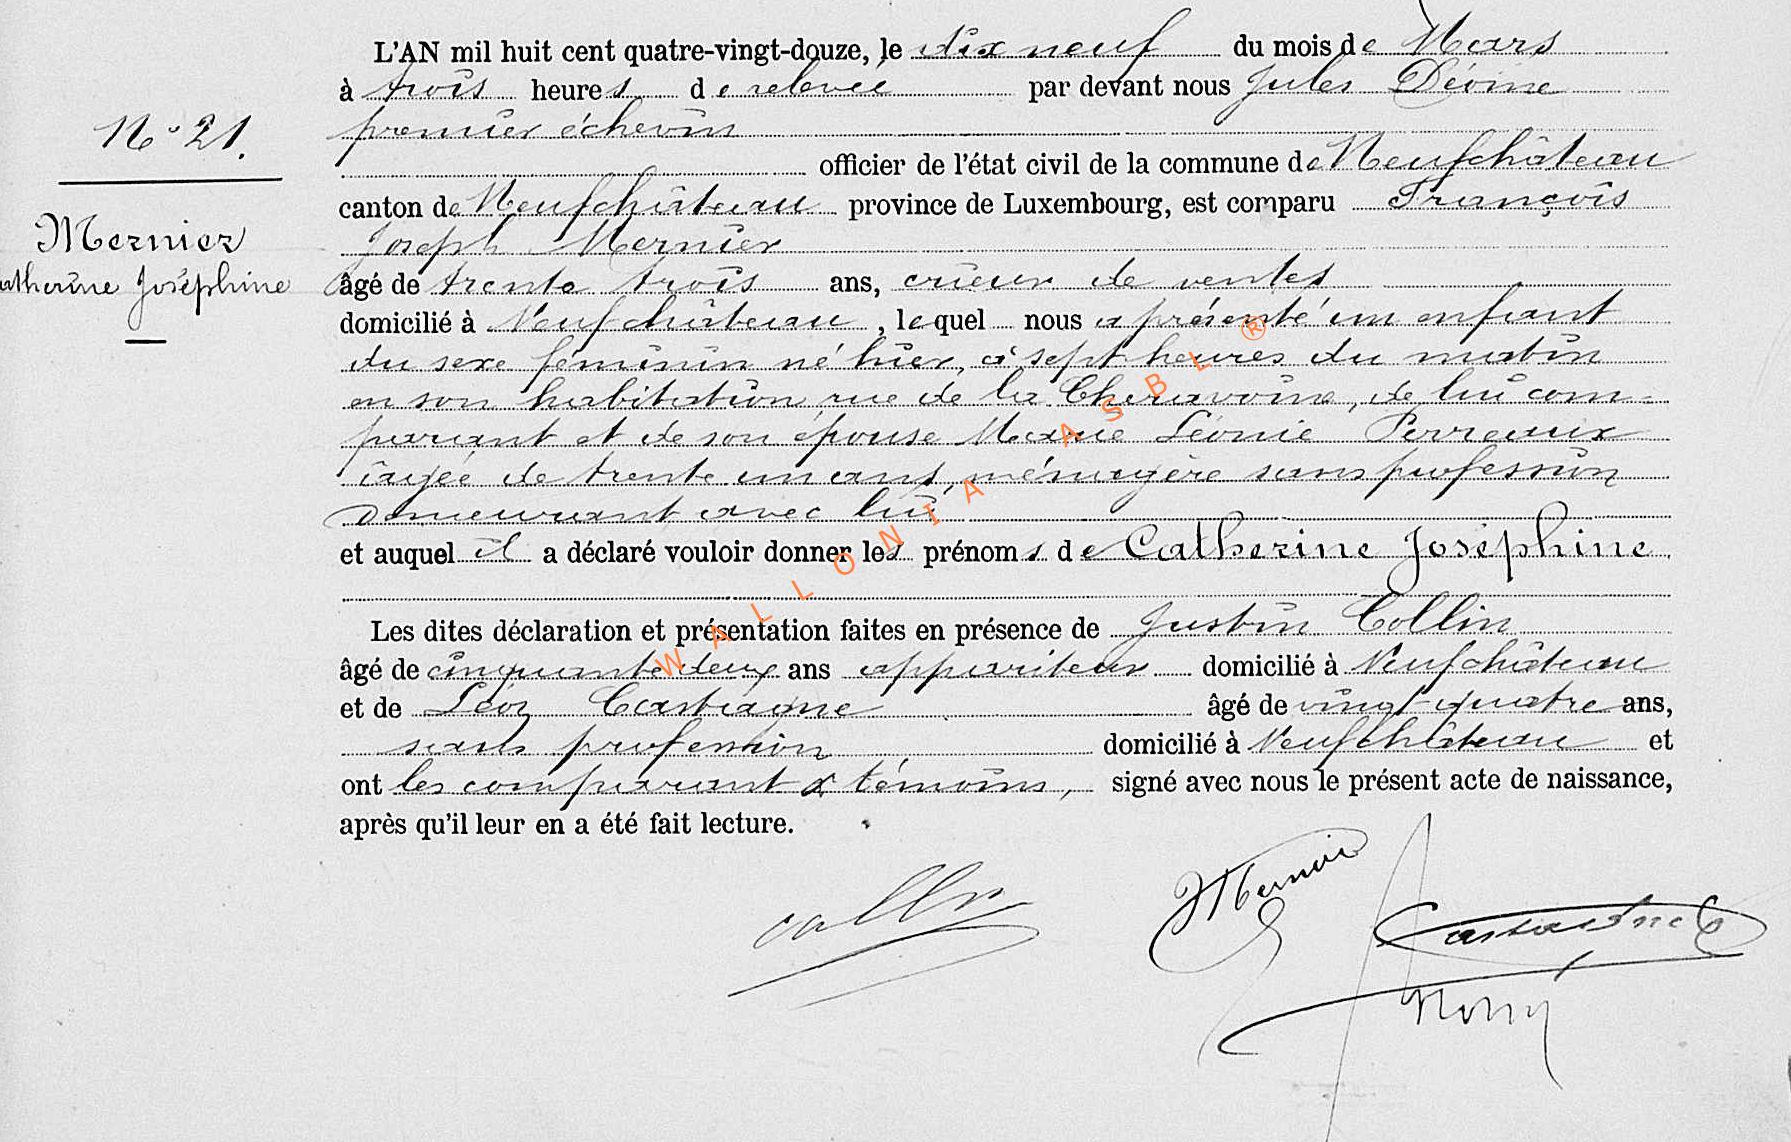 L'AN mil huit cent quatre-vingt-douze, le dix neuf du mois de Mars
à trois heures de relevée par devant nous Jules
premier échevin
N° 21.
officier de l'état civil de la commune de Neufchâteau
canton de Neufchâteau province de Luxembourg, est comparu François
Mernier
Joseph Mernier
âgé de trente trois ans, crieur de ventes
Joséphine
domicilié à Neufchâteau, lequel nous a présenté un enfant
du sexe féminin né hier, à sept heures du matin
en son habitation, rue de la, de lui com=
parant et de son épouse Marie Léonie Perreaux
âgée de trente un ans, ménagère sans profession
demeurant avec lui
et auquel il a déclaré vouloir donner les prénoms de Catherine Joséphine.
Les dites déclaration et présentation faites en présence de Justin Collin
âgé de cinquante deux ans appariteur domicilié à Neufchâteau
et de Léon Castaigne âgé de vingt-quatre ans,
sans profession domicilié à Neufchâteau et
ont les comparant & témoins, signé avec nous le présent acte de naissance,
après qu'il leur en a été fait lecture.
WALLONIA ASBL ®